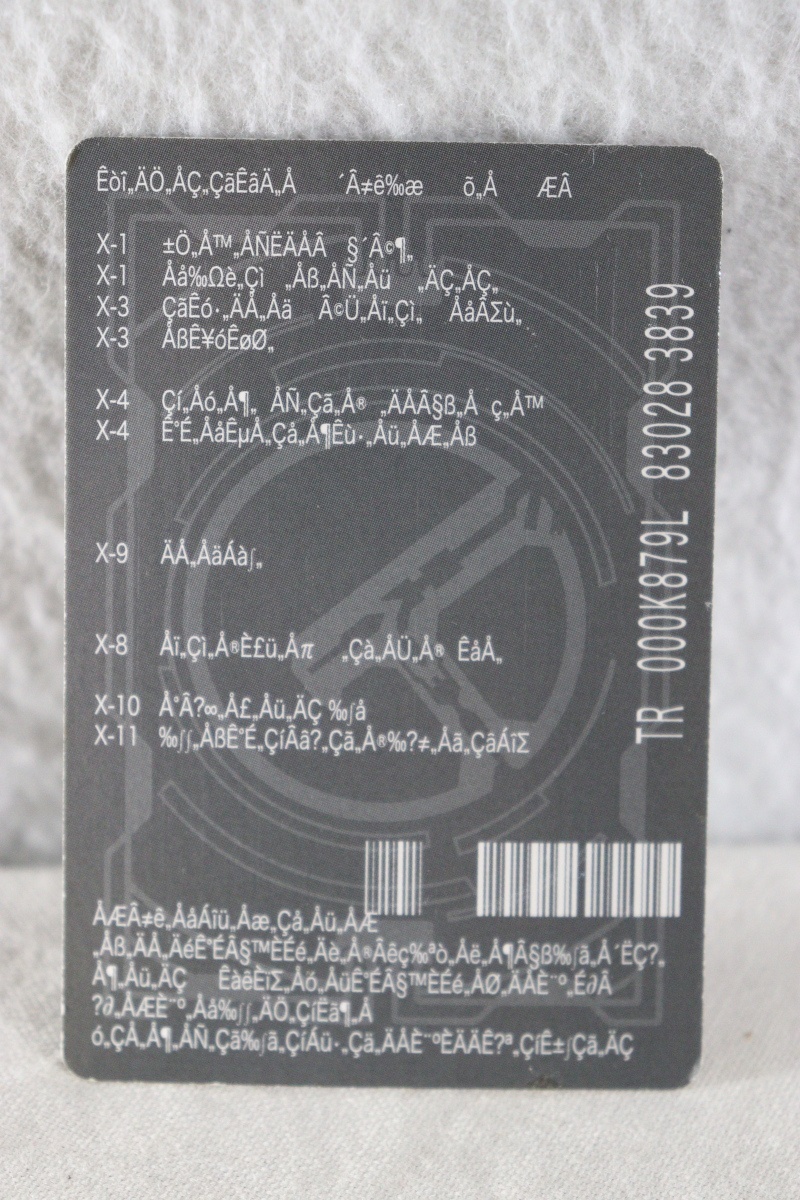 Êòî„ÄÖ„ÅÇ„ÇãÊâÄ„Å ´Â≠ê‰æ õ„Å ÆÂ
X-1 ±Ö„Å™„ÅÑËÄÅÂ §´Â©¶„
X-1 Åå‰Ωè„Çì „Åß„ÅÑ„Åü „ÄÇ„ÅÇ„
X-3 ÇãÊó·„ÄÅ„Åä Â©Ü„Åï„Çì„ ÅåÂΣù„
X-3 ÅßÊ¥óÊøØ„
X-4 Çí„Åó„Å¶„ ÅÑ„Çã„Å® „ÄÅÂ§ß„Å ç„Å™
X-4 Ê°É„ÅåÊµÅ„Çå„Å¶Êù·„Åü„ÅÆ„Åß
X-9 ÄÅ„ÅäÁà∫„
X-8 Åï„Çì„Å®È£ü„Åπ „Çà„ÅÜ„Å® ÊåÅ„
X-10 Å°Â?∞„Å£„Åü„ÄÇ ‰∫å
X-11 ‰∫∫„ÅßÊ°É„ÇíÂâ?„Çã„Å®‰?≠„Åã„ÇâÁîΣ
ÅÆÂ≠ê„ÅåÁîü„Åæ„Çå„Åü„ÅÆ
„Åß„ÄÅ„ÄéÊ°ÉÂ§™ÈÉé„Äè„Å®Âêç‰ªò„Åë„Å¶Â§ß‰∫ã„Å´ËÇ?„
Å¶„Åü„ÄÇ ÊàêÈïΣ„Åó„ÅüÊ°ÉÂ§™ÈÉé„ÅØ„ÄÅÈ¨º„É∂Â
?∂„ÅÆÈ¨º„Åå‰∫∫„ÄÖ„ÇíËã¶„Å
ó„ÇÅ„Å¶„ÅÑ„Çã‰∫ã„ÇíÁü·„Çä„ÄÅÈ¨ºÈÄÄÊ?ª„ÇíÊ±∫Çã„ÄÇ
TR 000K879L 83028 3839